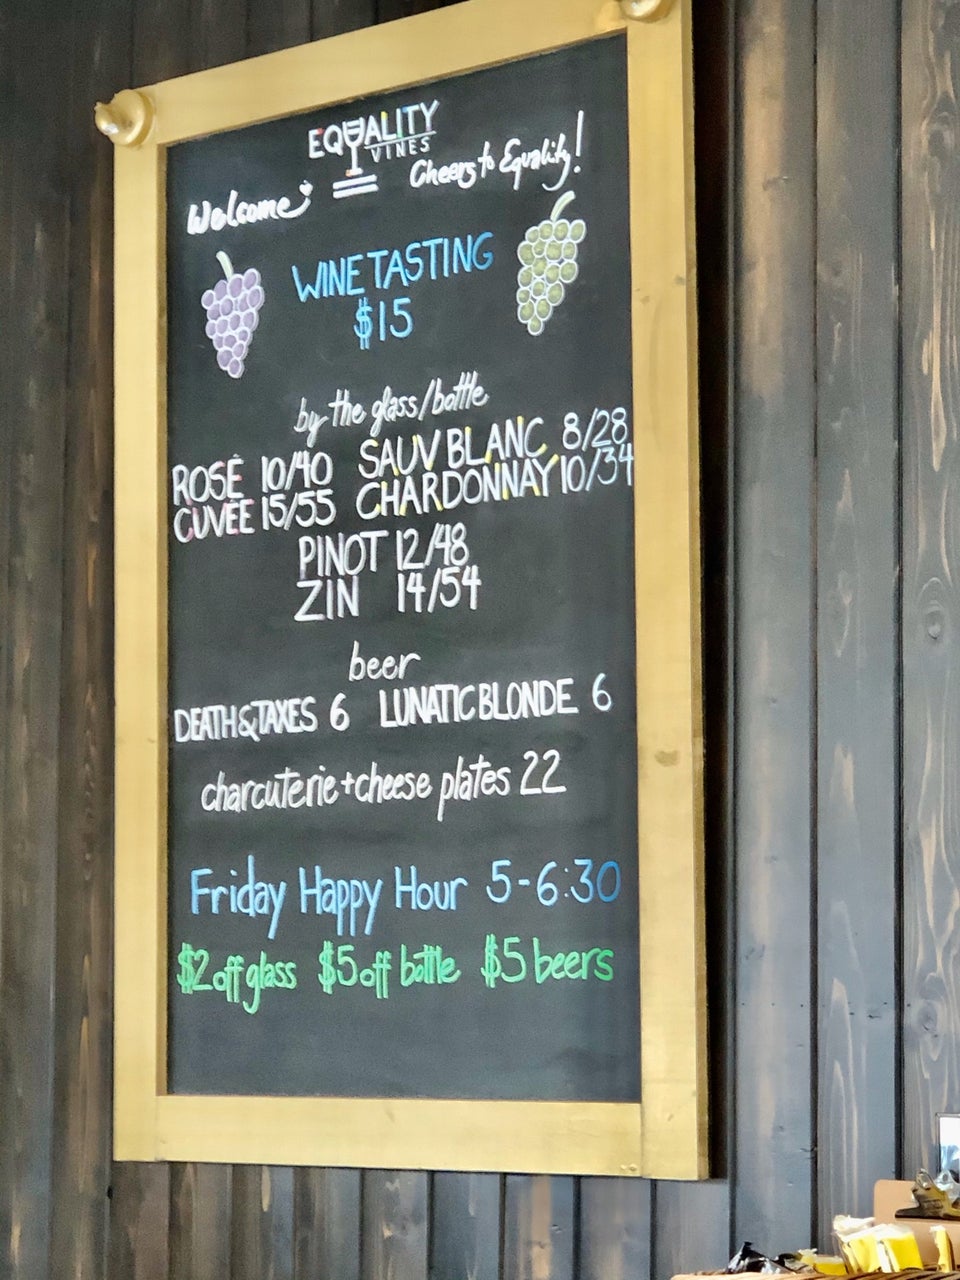 EQUALITY
VINES
Welcome Cheers to Equality!
WINE TASTING
$15
by the glass/bottle
ROSÉ 10/40 SAUV BLANC 8/28
CUVÉE 15/55 CHARDONNAY 10/34
PINOT 12/48
ZIN 14/54
beer
DEATH & TAXES 6 LUNATIC BLONDE 6
charcuterie + cheese plates 22
Friday Happy Hour 5-6:30
$2 off glass $5 off bottle $5 beers